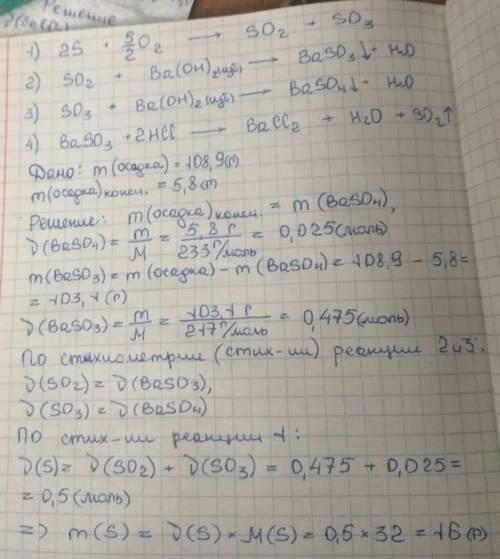 1) 2S + 5/2 O₂ → SO₂ + SO₃
2) SO₂ + Ba(OH)₂(изб) → BaSO₃↓ + H₂O
3) SO₃ + Ba(OH)₂(изб) → BaSO₄↓ + H₂O
4) BaSO₃ + 2HCl → BaCl₂ + H₂O + SO₂↑
Дано: m(осадка) = 108,9(г)
m(осадка)конеч. = 5,8(г)
Решение: m(осадка)конеч. = m(BaSO₄),
ν(BaSO₄) = m/M = 5,8 г / 233 г/моль = 0,025(моль)
m(BaSO₃) = m(осадка) - m(BaSO₄) = 108,9 - 5,8 =
= 103,1 (г)
ν(BaSO₃) = m/M = 103,1 г / 217 г/моль = 0,475(моль)
По стехиометрии (стех-ии) реакции 2и3:
ν(SO₂) = ν(BaSO₃),
ν(SO₃) = ν(BaSO₄)
По стех-ии реакции 1:
ν(S) = ν(SO₂) + ν(SO₃) = 0,475 + 0,025 =
= 0,5(моль)
=> m(S) = ν(S) × M(S) = 0,5 × 32 = 16 (г)
Решение